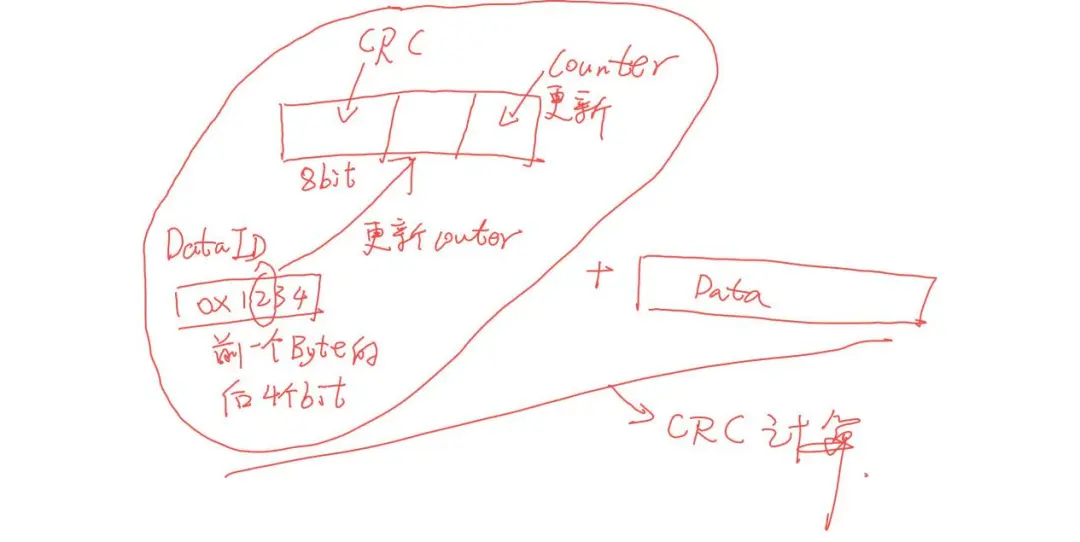 CRC
Counter
更新
8bit
更新couter
DataID
0x1234
前一个Byte的
后4个bit
+
Data
CRC计算